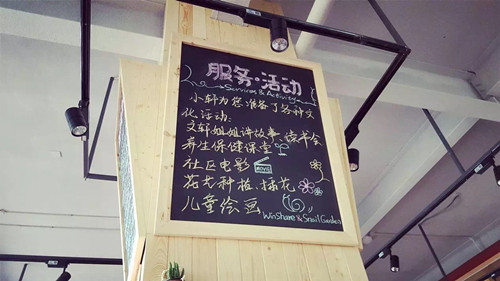 服务·活动
Services & Activity
小轩为您准备了各种文
化活动:
文轩姐姐讲故事、读书会
养生保健课堂
社区电影
花卉种植、插花
儿童绘画
WinShare & Snail Garden